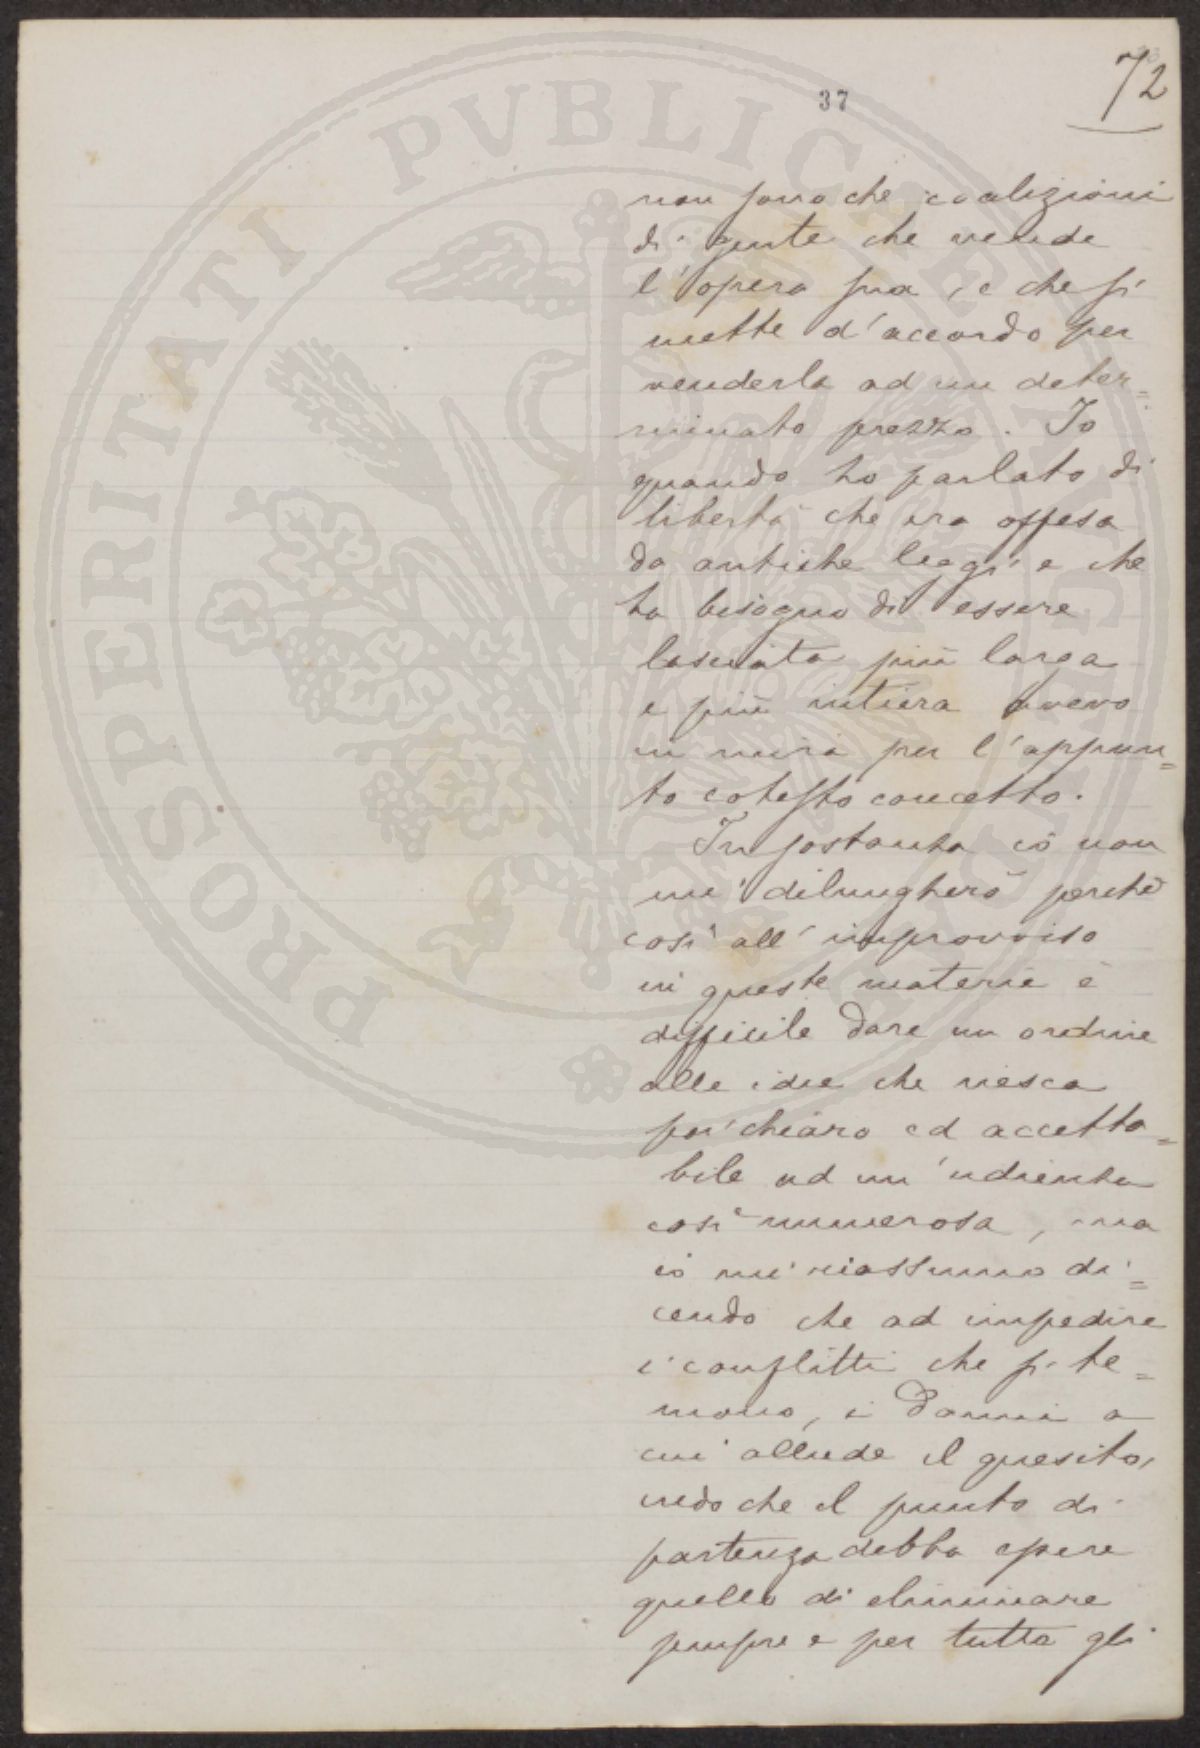 72
37
PROSPERITATI PVBLICAE AVGENDAE
non sono che coalizioni
di gente che vende
l'opera sua, e che si
mette d'accordo per
venderla ad un deter=
minato prezzo. Io
quando ho parlato di
libertà che era offesa
da antiche leggi e che
ha bisogno di essere
lasciata più larga
e più intiera avevo
in mira per l'appun=
to cotesto concetto.
In sostanza io non
mi dilungherò perchè
così all'improvviso
in queste materie è
difficile dare un ordine
alle idee che riesca
poi chiaro ed accetta=
bile ad un'udienza
così numerosa, ma
io mi riassumo di=
cendo che ad impedire
i conflitti che si te=
mono, i danni a
cui allude il quesito,
credo che il punto di
partenza debba essere
quello di eliminare
sempre e per tutto gli